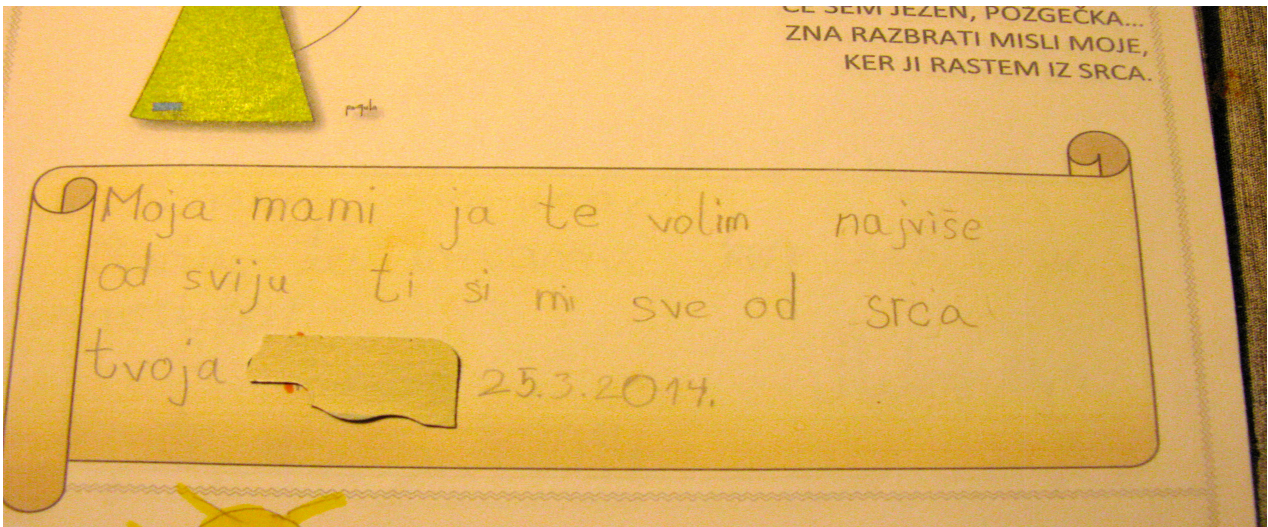 ČE SEM JEZEN, POŽGEČKA...
ZNA RAZBRATI MISLI MOJE,
KER JI RASTEM IZ SRCA.
Moja mami ja te volim najviše
od sviju ti si mi sve od srća
tvoja
25.3.2014.